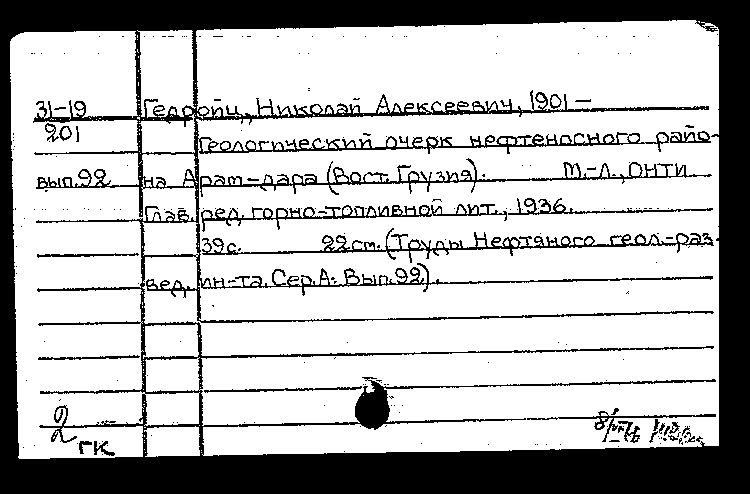 31-19 Гедройц, Николай Алексеевич, 1901 –
201 Геологический очерк нефтеносного райо-
вып.92 на Арат-дара (Вост. Грузия). М.-Л., ОНТИ
Глав. ред. горно-топливной лит., 1936.
39 с. 22 см. (Труды Нефтяного геол.-раз-
вед. ин-та. Сер.А. Вып.92).
2
ГК